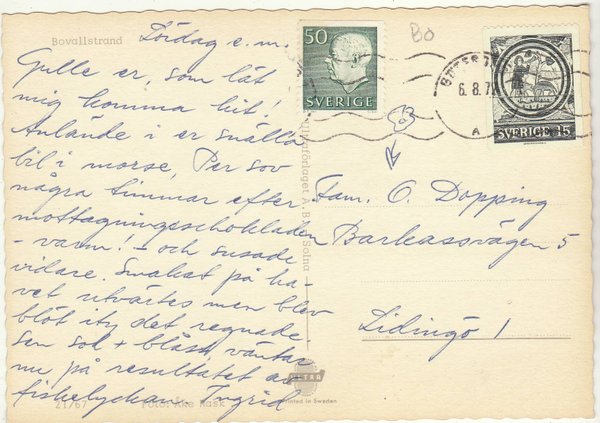 Bovallstrand
Lördag e.m.
Gulle er, som låt
mig komma hit!
Anlände i er snälla
bil i morse. Per sov
några timmar efter
mottagningschokladen
- varm! - och susade
vidare. Smakat på ha-
vet utvärtes men blev
blöt ity det regnade
sen sol + blåst, väntar
nu på resultatet av
fiskelyckan. Ingrid
21/67 Foto: Åke Rask
A.B., Solna
ULTRA
Printed in Sweden
50
SVERIGE
BO
6.8.7
A
SVERIGE 15
Fam. O. Dopping
Barkassvägen 5
Lidingö 1